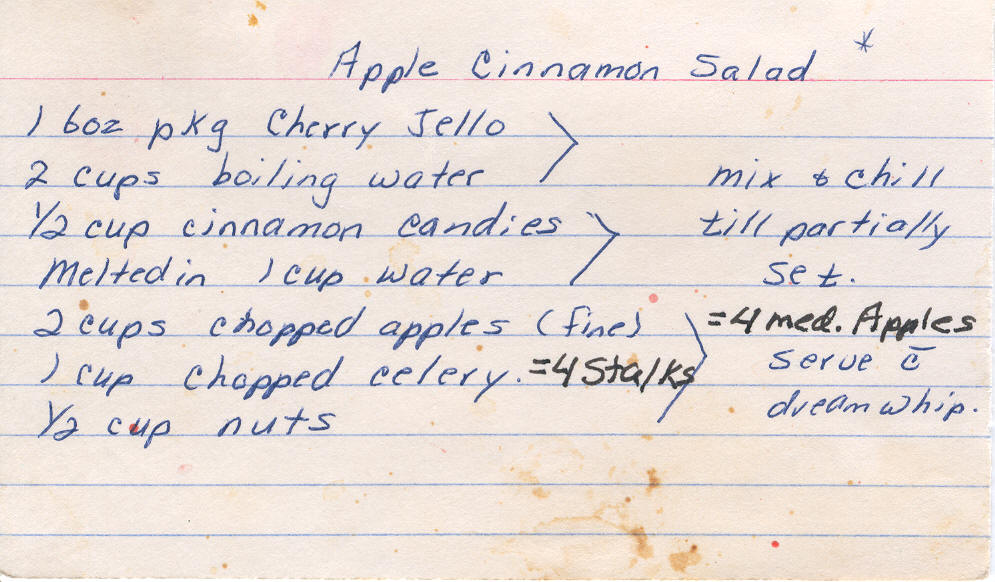 Apple Cinnamon Salad *
1 6oz pkg Cherry Jello
2 cups boiling water mix & chill
1/2 cup cinnamon candies till partially
Melted in 1 cup water set.
2 cups chopped apples (fine) =4 med. Apples
1 cup chopped celery. =4 Stalks serve c̄
1/2 cup nuts dream whip.